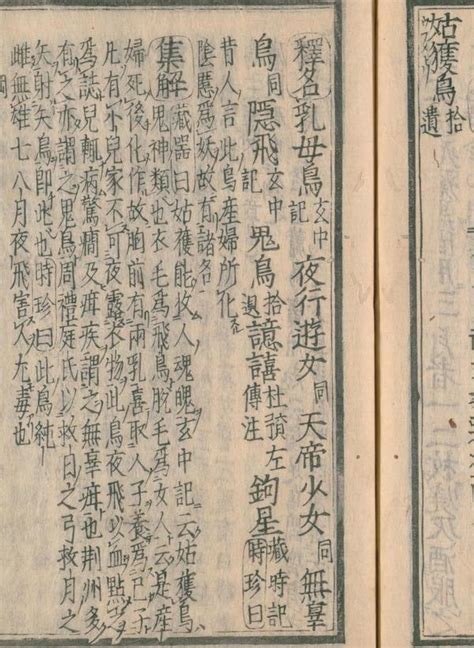 姑獲鳥拾遺
釋名乳母鳥玄中記夜行遊女同天帝少女同無辜
鳥同隱飛玄中記鬼鳥拾遺譩譆杜預左傳注鉤星歲時記時珍曰
昔人言此鳥產婦所化
陰慝為妖故有諸名
集解藏器曰姑獲能收人魂魄玄中記云姑獲鳥
鬼神類也衣毛為飛鳥脫毛為女人云是產
婦死後化作故胸前有兩乳喜取人子養為己子
凡有小兒家不可夜露衣物此鳥夜飛以血點之
為誌兒輒病驚癎及疳疾謂之無辜疳也荊州多
有之亦謂之鬼鳥周禮庭氏以救日之弓救月之
矢射矢鳥即此也時珍曰此鳥純
雌無雄七八月夜飛害人尤毒也